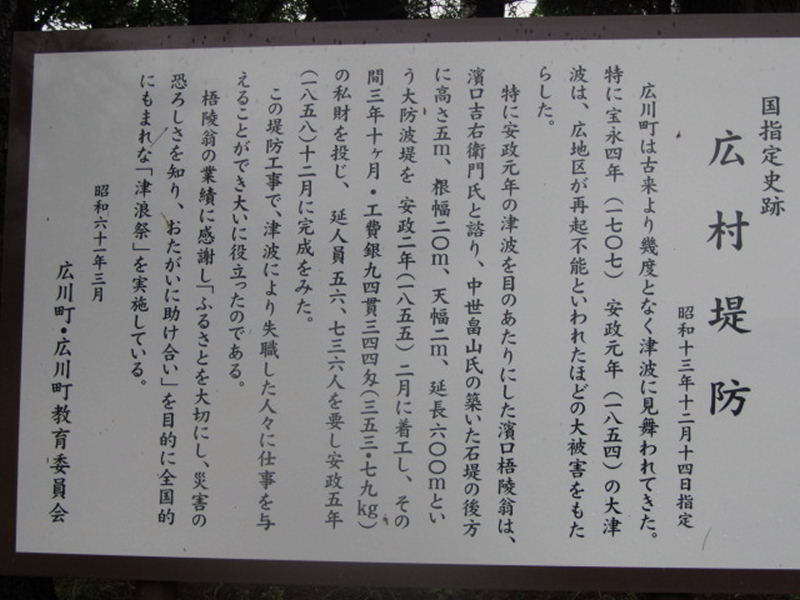 国指定史跡
広村堤防
昭和十三年十二月十四日指定
広川町は古来より幾度となく津波に見舞われてきた。
特に宝永四年（一七〇七）安政元年（一八五四）の大津
波は、広地区が再起不能といわれたほどの大被害をもた
らした。
特に安政元年の津波を目のあたりにした濱口梧陵翁は、
濱口吉右衛門氏と諮り、中世畠山氏の築いた石堤の後方
に高さ五m、根幅二〇m、天幅二m、延長六〇〇mとい
う大防波堤を 安政二年（一八五五）二月に着工し、その
間三年十ヶ月・工費銀九四貫三四四匁（三五三・七九kg）
の私財を投じ、延人員五六、七三六人を要し安政五年
（一八五八）十二月に完成をみた。
この堤防工事で、津波により失職した人々に仕事を与
えることができ大いに役立ったのである。
梧陵翁の業績に感謝し「ふるさとを大切にし、災害の
恐ろしさを知り、おたがいに助け合い」を目的に全国的
にもまれな「津浪祭」を実施している。
昭和六十一年三月
広川町・広川町教育委員会